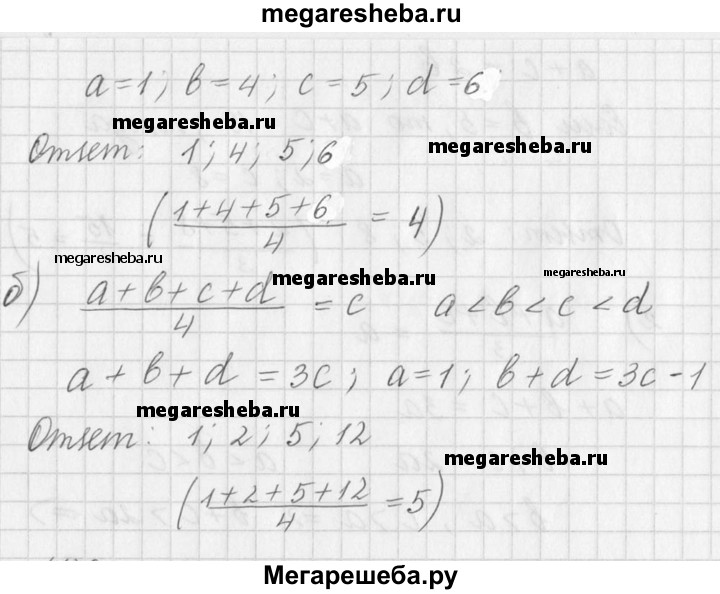 megaresheba.ru
a=1; в=4; c=5; d=6
megaresheba.ru
Ответ: 1; 4; 5; 6 megaresheba.ru
(1+4+5+6/4 = 4)
megaresheba.ru megaresheba.ru megaresheba.ru
б) a+в+c+d/4 = c a<в<c<d
a+в+d=3c; a=1; в+d=3c-1
megaresheba.ru
Ответ: 1; 2; 5; 12
megaresheba.ru
(1+2+5+12/4 =5)
Мегарешеба.ру